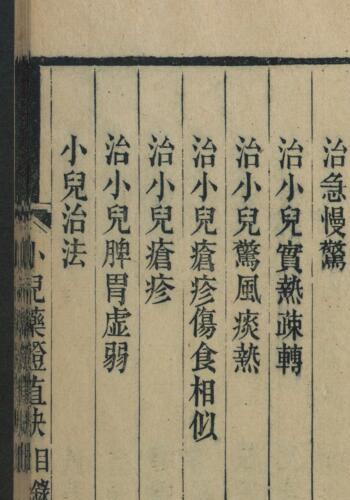 治急慢驚
治小兒實熱疎轉
治小兒驚風痰熱
治小兒瘡疹傷食相似
治小兒瘡疹
治小兒脾胃虚弱
小兒治法
小兒藥證直决目錄